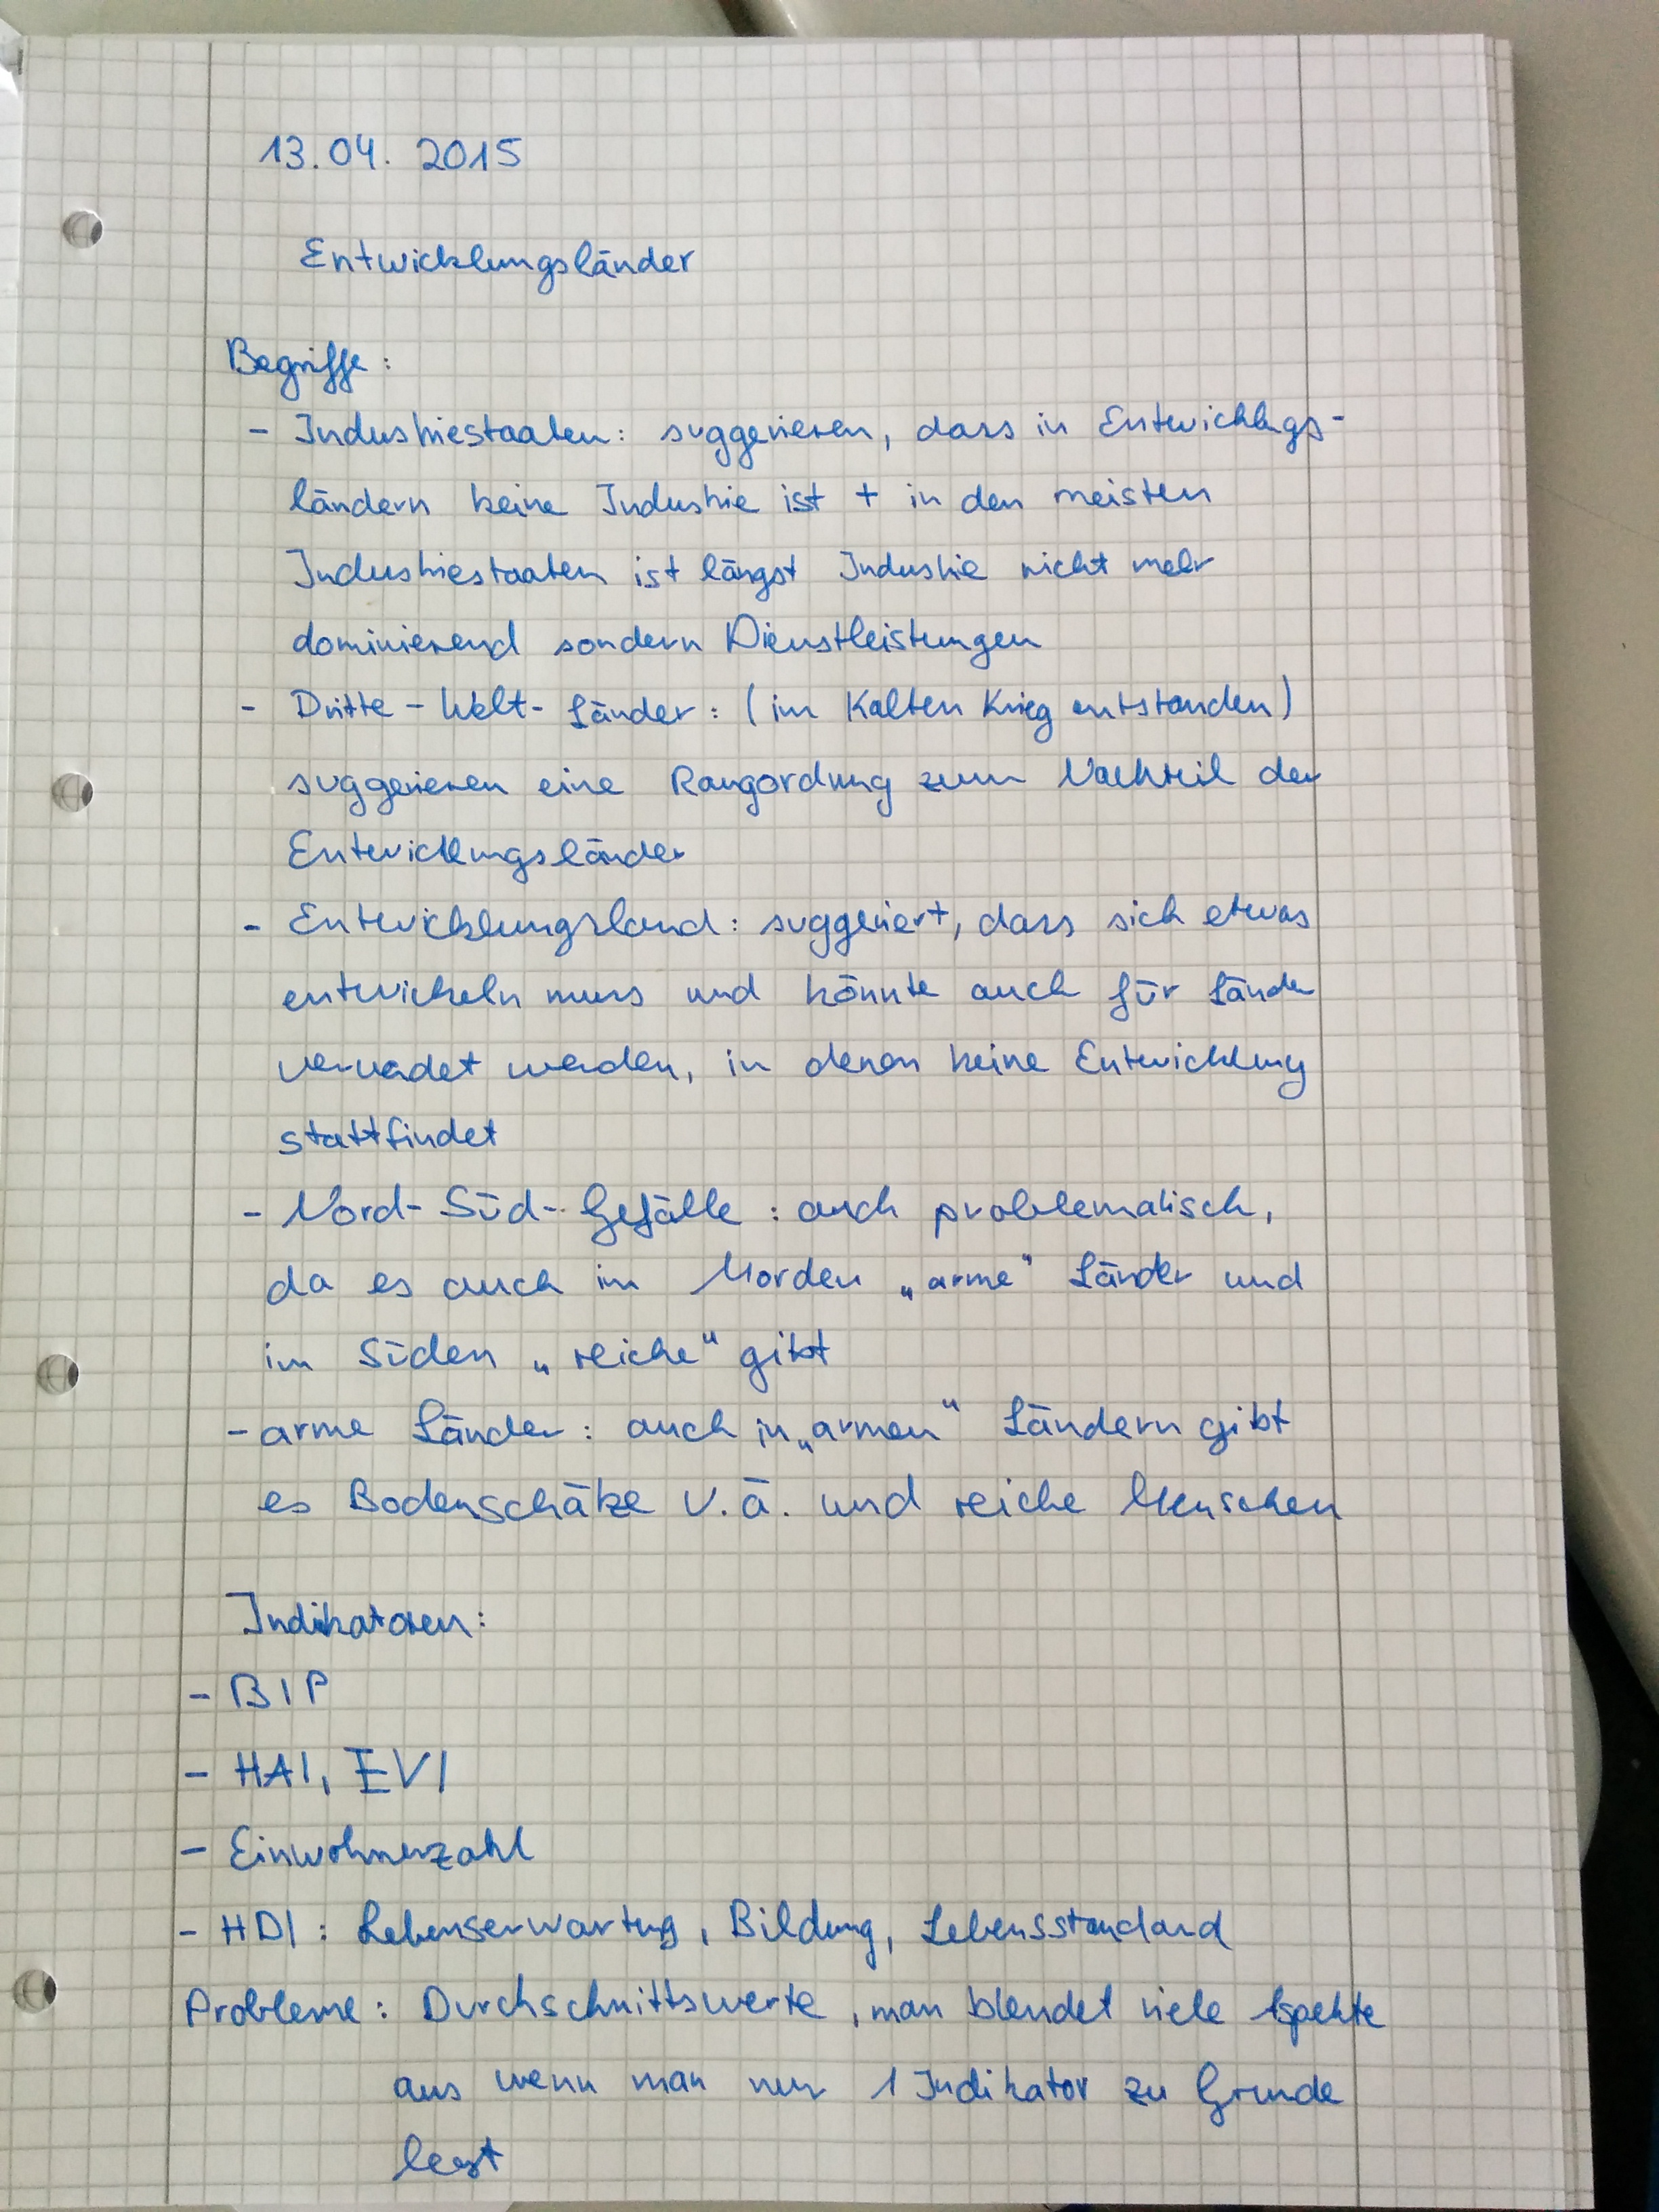 13.04. 2015
Entwicklungsländer
Begriffe:
- Industriestaaten: suggerieren, dass in Entwicklugs-
ländern keine Industrie ist + in den meisten
Industriestaaten ist längst Industrie nicht mehr
dominierend sondern Dienstleistungen
- Dritte-Welt-Länder: (im Kalten Krieg entstanden)
suggerieren eine Rangordnung zum Nachteil der
Entwicklungsländer
- Entwicklungsland: suggeriert, dass sich etwas
entwickeln muss und könnte auch für Länder
verwedet werden, in denen keine Entwicklung
stattfindet
- Nord-Süd-Gefälle: auch problematisch,
da es auch im Norden „arme" Länder und
im Süden „reiche" gibt
- arme Länder: auch in „armen" Ländern gibt
es Bodenschätze u.ä. und reiche Menschen
Indikatoren:
- BIP
- HAI, EVI
- Einwohnerzahl
- HDI: Lebenserwartung, Bildung, Lebensstandard
Probleme: Durchschnittswerte, man blendet viele Aspekte
aus wenn man nur 1 Indikator zu Grunde
legt